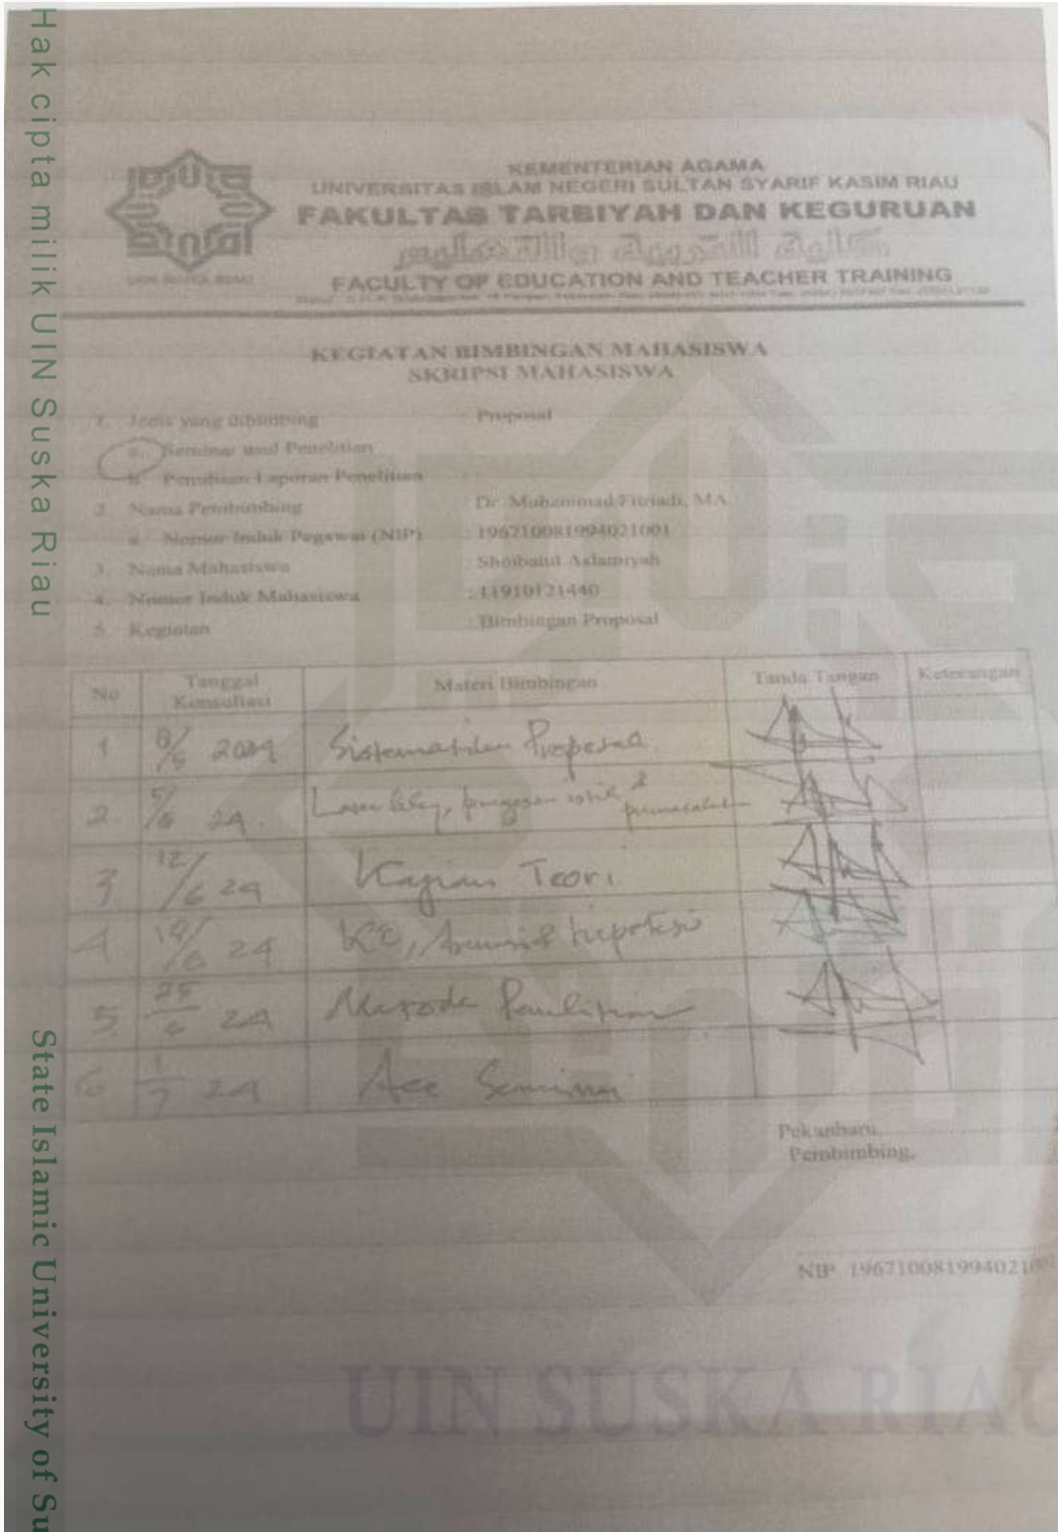 Hak cipta milik UIN Suska Riau
State Islamic University of Su
KEMENTERIAN AGAMA
UNIVERSITAS ISLAM NEGERI SULTAN SYARIF KASIM RIAU
FAKULTAS TARBIYAH DAN KEGURUAN
كلية التربية والتعليم
FACULTY OF EDUCATION AND TEACHER TRAINING
UIN SUSKA RIAU
KEGIATAN BIMBINGAN MAHASISWA
SKRIPSI MAHASISWA
1. Jenis yang dibimbing : Proposal
a. Seminar usul Penelitian
b. Penulisan Laporan Penelitian
2. Nama Pembimbing : Dr. Muhammad Fitriadi, MA
a. Nomor Induk Pegawai (NIP) : 196710081994021001
3. Nama Mahasiswa : Shoibatul Aslamiyah
4. Nomor Induk Mahasiswa : 11910121440
5. Kegiatan : Bimbingan Proposal
No Tanggal Konsultasi Materi Bimbingan Tanda Tangan Keterangan
1 2024 Sistematika Proposal
2 24
3 12/6 24 Kajian Teori
4 24 KO, Asumsi & hipotesis
5 25/6 24 Metode Penelitian
6 1/7 24 Acc Seminar
Pekanbaru,
Pembimbing,
NIP. 196710081994021001
UIN SUSKA RIAU